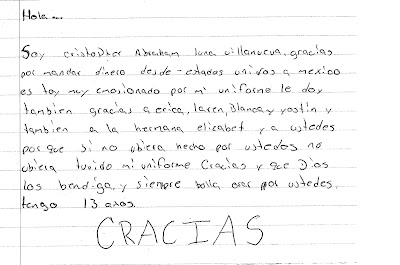 Hola...
Soy cristopher Abraham luna villanueva, gracias
por mandar dinero desde -estados unidos a mexico
es toy muy emosionado por mi uniforme le doy
tambien gracias a erica, Karen, Blanca y yostin y
tambien a la hermana elizabet y a ustedes
por que si no ubiera hecho por ustedes no
ubiera tuvido mi uniforme Cracias y que Dios
los bendiga y siempre orar por ustedes.
tengo 13 años.
CRACIAS